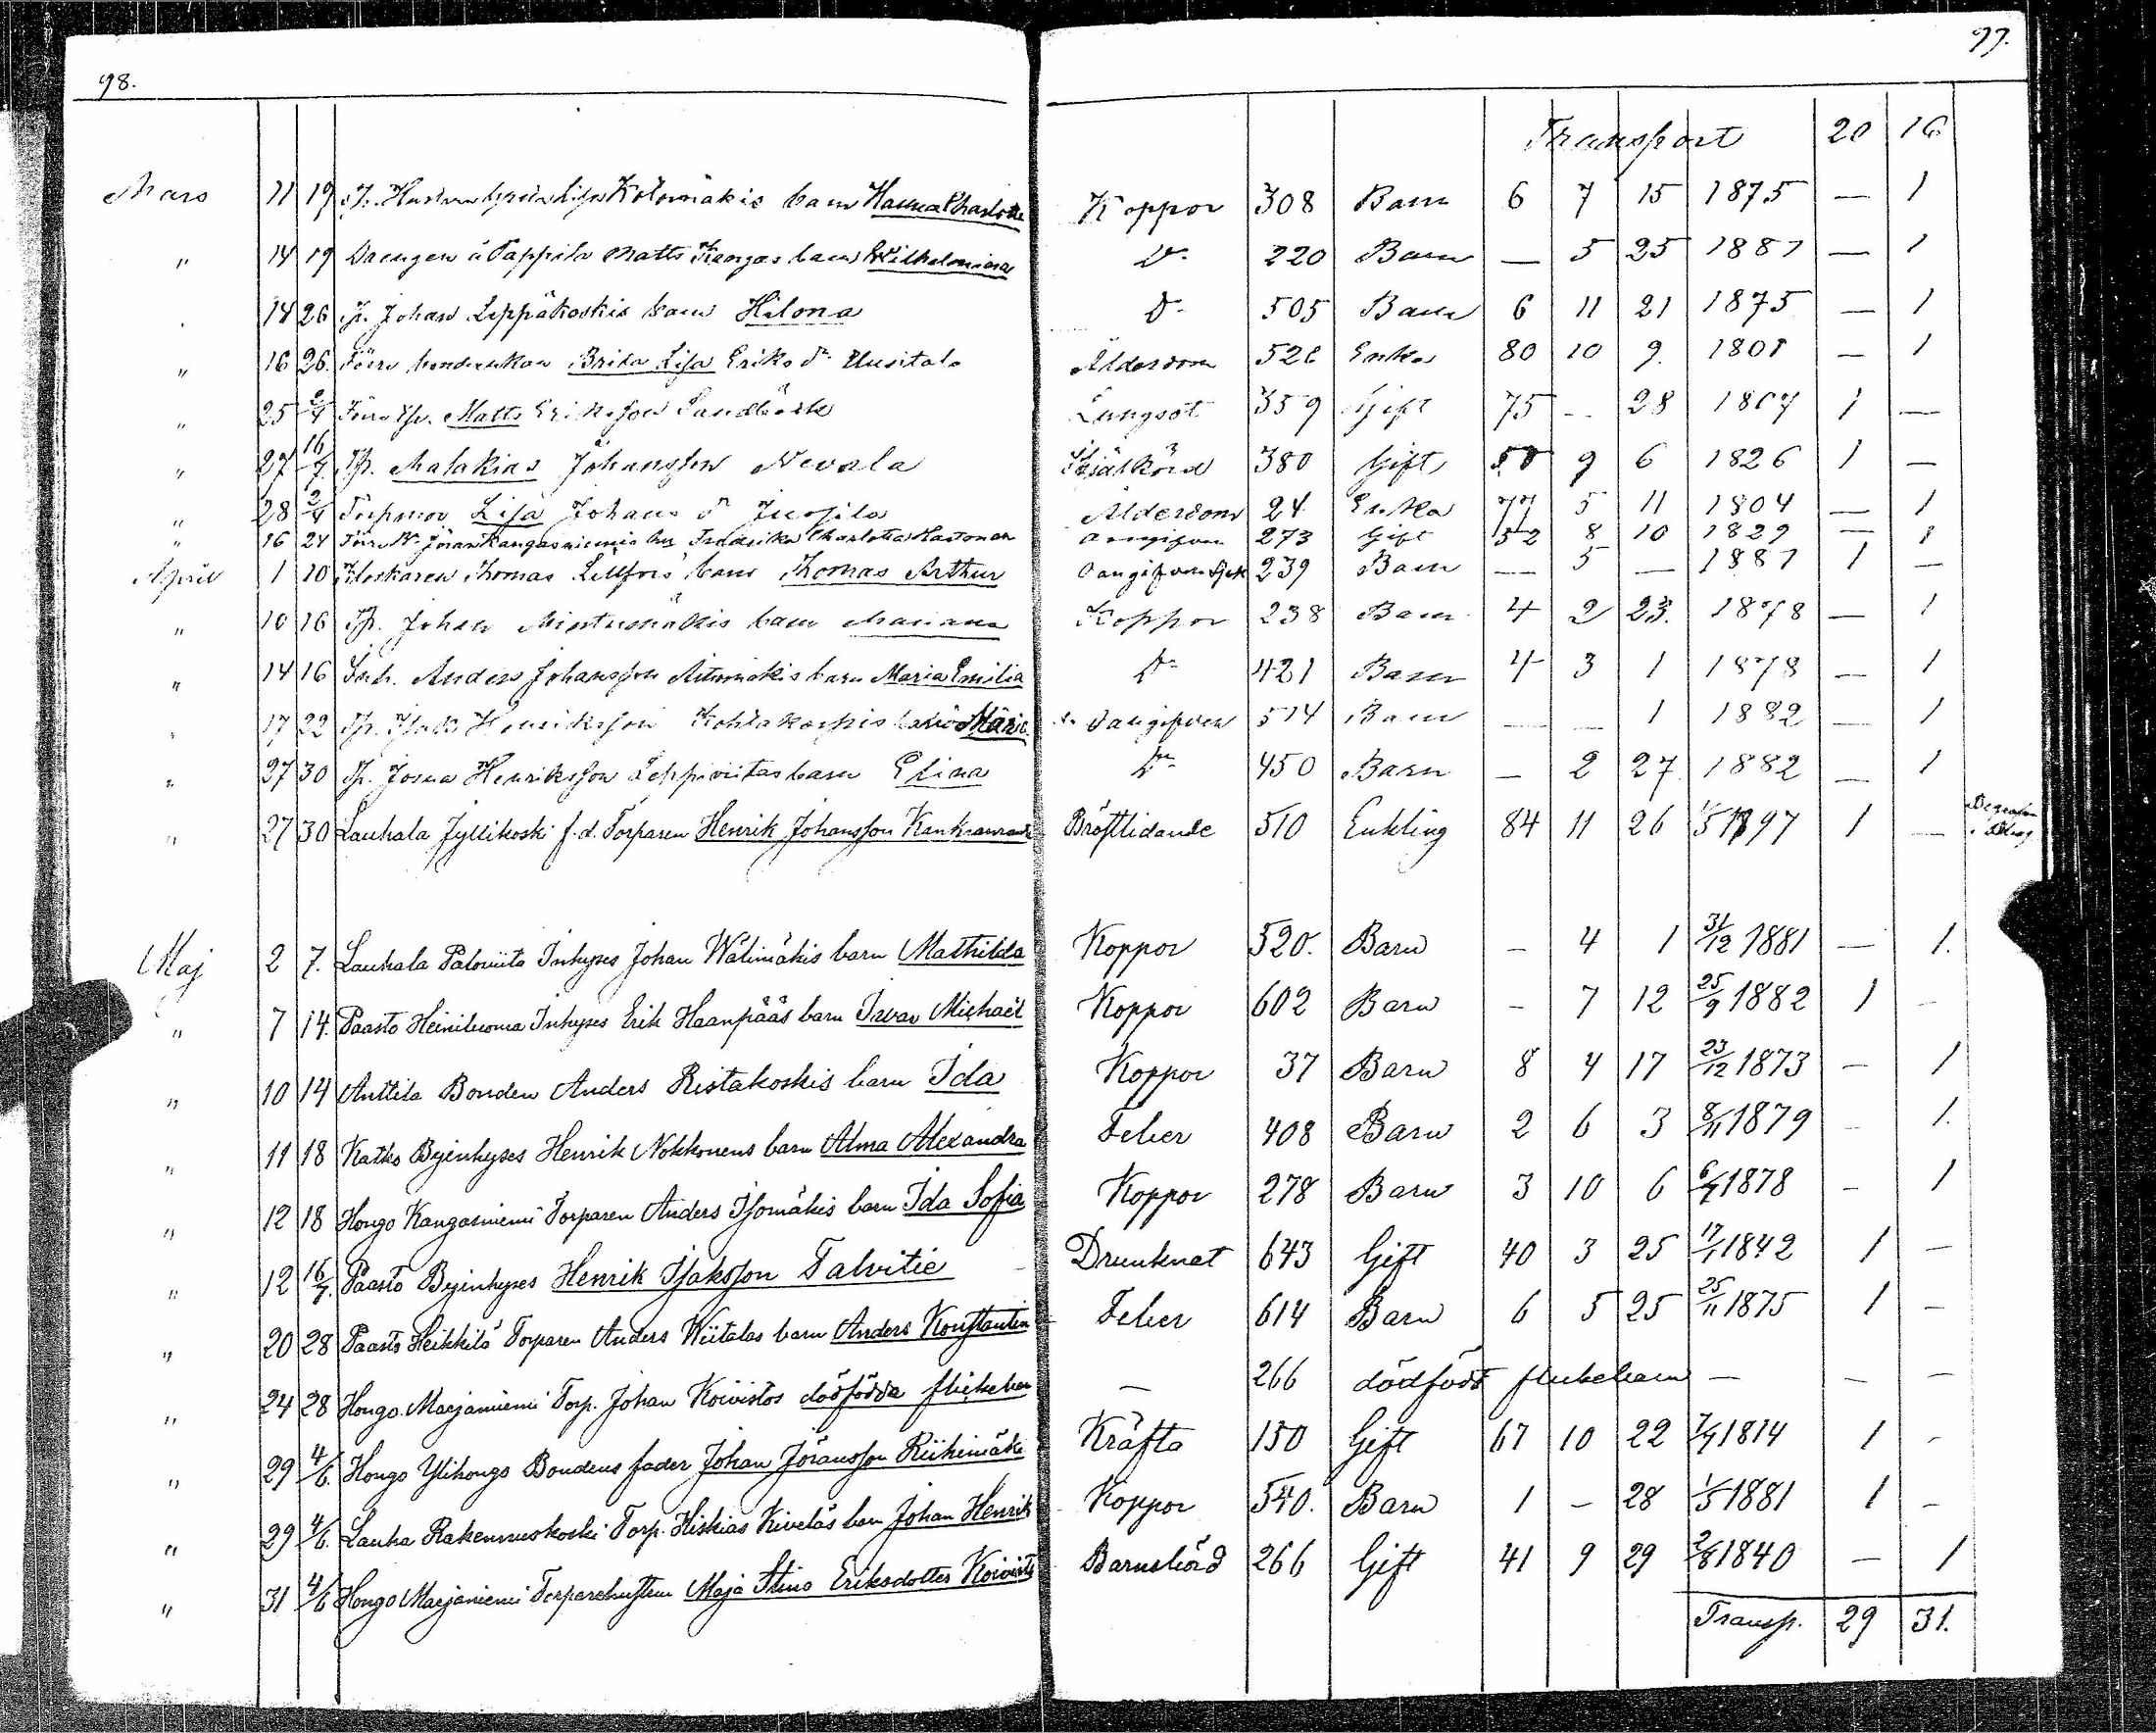 98.
97.
Transport 20 16
Mars 11 19 Tp. Kölömäkis barn Hanna Charlotta Koppor 308 Barn 6 7 15 1875 — 1
" 14 19 Drengen å Pappila Matts Kangas barn Wilhelmina Do 220 Barn — 5 25 1881 — 1
14 26 Tp. Johan Leppäkoskis barn Hilma Do 505 Barn 6 11 21 1875 — 1
" 16 26. Förre bondenkan Brita Lisa Eriks dr Uusitalo Ålderdom 526 Enka 80 10 9. 1801 — 1
" 25 2/4 Förre Tp. Matts Eriksson Sandbäck Lungsot 359 Gift 75 -- 28 1807 1 —
" 27 16/7. Tp. Malakias Johansson Nevala 380 Gift 9 6 1826 1 —
" 28 2/4 Lisa Johans dr Juosila Ålderdom 24 Enka 77 5 11 1804 — 1
" 16 24 Kangasniemis Charlotta oangifven 273 Gift 52 8 10 1829 — 1
April 1 10 Klockaren Thomas Lillfors barn Thomas Arthur Oangifven sjuk 239 Barn — 5 — 1881 1 —
" 10 16 Tp. Johan Mintumäkis barn Mariana Koppor 238 Barn 4 2 23. 1878 — 1
" 14 16 Inh. Anders Johansson barn Maria Emilia Do 421 Barn 4 3 1 1878 — 1
17 22 Tp. Isak Henriksson barn Maria Oangifven 514 Barn — — 1 1882 — 1
" 27 30 Tp. Josua Henriksson Leppiviitas barn Elina Do 450 Barn — 2 27 1882 — 1
" 27 30 Lauhala Jyllikoski f.d. Torparen Henrik Johansson Bröstlidande 510 Enkling 84 11 26 1/5 1797 1 —
Maj 2 7. Lauhala Paloviita Inhyses Johan Wälimäkis barn Mathilda Koppor 520. Barn – 4 1 31/12 1881 — 1.
" 7 14. Paasto Heiniluoma Inhyses Erik Haanpääs barn Iwar Michaël Koppor 602 Barn – 7 12 25/9 1882 1 –
" 10 14 Anttila Bonden Anders Ristakoskis barn Ida Koppor 37 Barn 8 4 17 23/12 1873 — 1
" 11 18 Katko Byinhyses Henrik Nokkonens barn Alma Alexandra Feber 408 Barn 2 6 3 8/11 1879 – 1.
" 12 18 Hongo Kangasniemi Torparen Anders Isomäkis barn Ida Sofia Koppor 278 Barn 3 10 6 6/7 1878 – 1
" 12 16/7. Paasto Byinhyses Henrik Isaksson Talvitie Drunknat 643 Gift 40 3 25 17/1 1842 1 –
" 20 28 Paasto Heikkilä Torparen Anders Wiitalas barn Anders Konstantin Feber 614 Barn 6 5 25 25/11 1875 1 –
" 24 28 Hongo Marjaniemi Torp. Johan Koivistos dödfödda flickebarn — 266 dödfödt flickebarn — – —
" 29 4/6. Hongo Ylihongo Bondens fader Johan Jöransson Riihimäki Kräfta 150 Gift 67 10 22 7/7 1814 1 –
" 29 4/6. Lauha Rakennuskoski Torp. Hiskias Kiveläs barn Johan Henrik Koppor 540. Barn 1 – 28 1/5 1881 1 –
" 31 4/6 Hongo Marjaniemi Torparehustrun Maja Stina Eriksdotter Koivisto Barnsbörd 266 Gift 41 9 29 2/8 1840 — 1
Transp. 29 31.